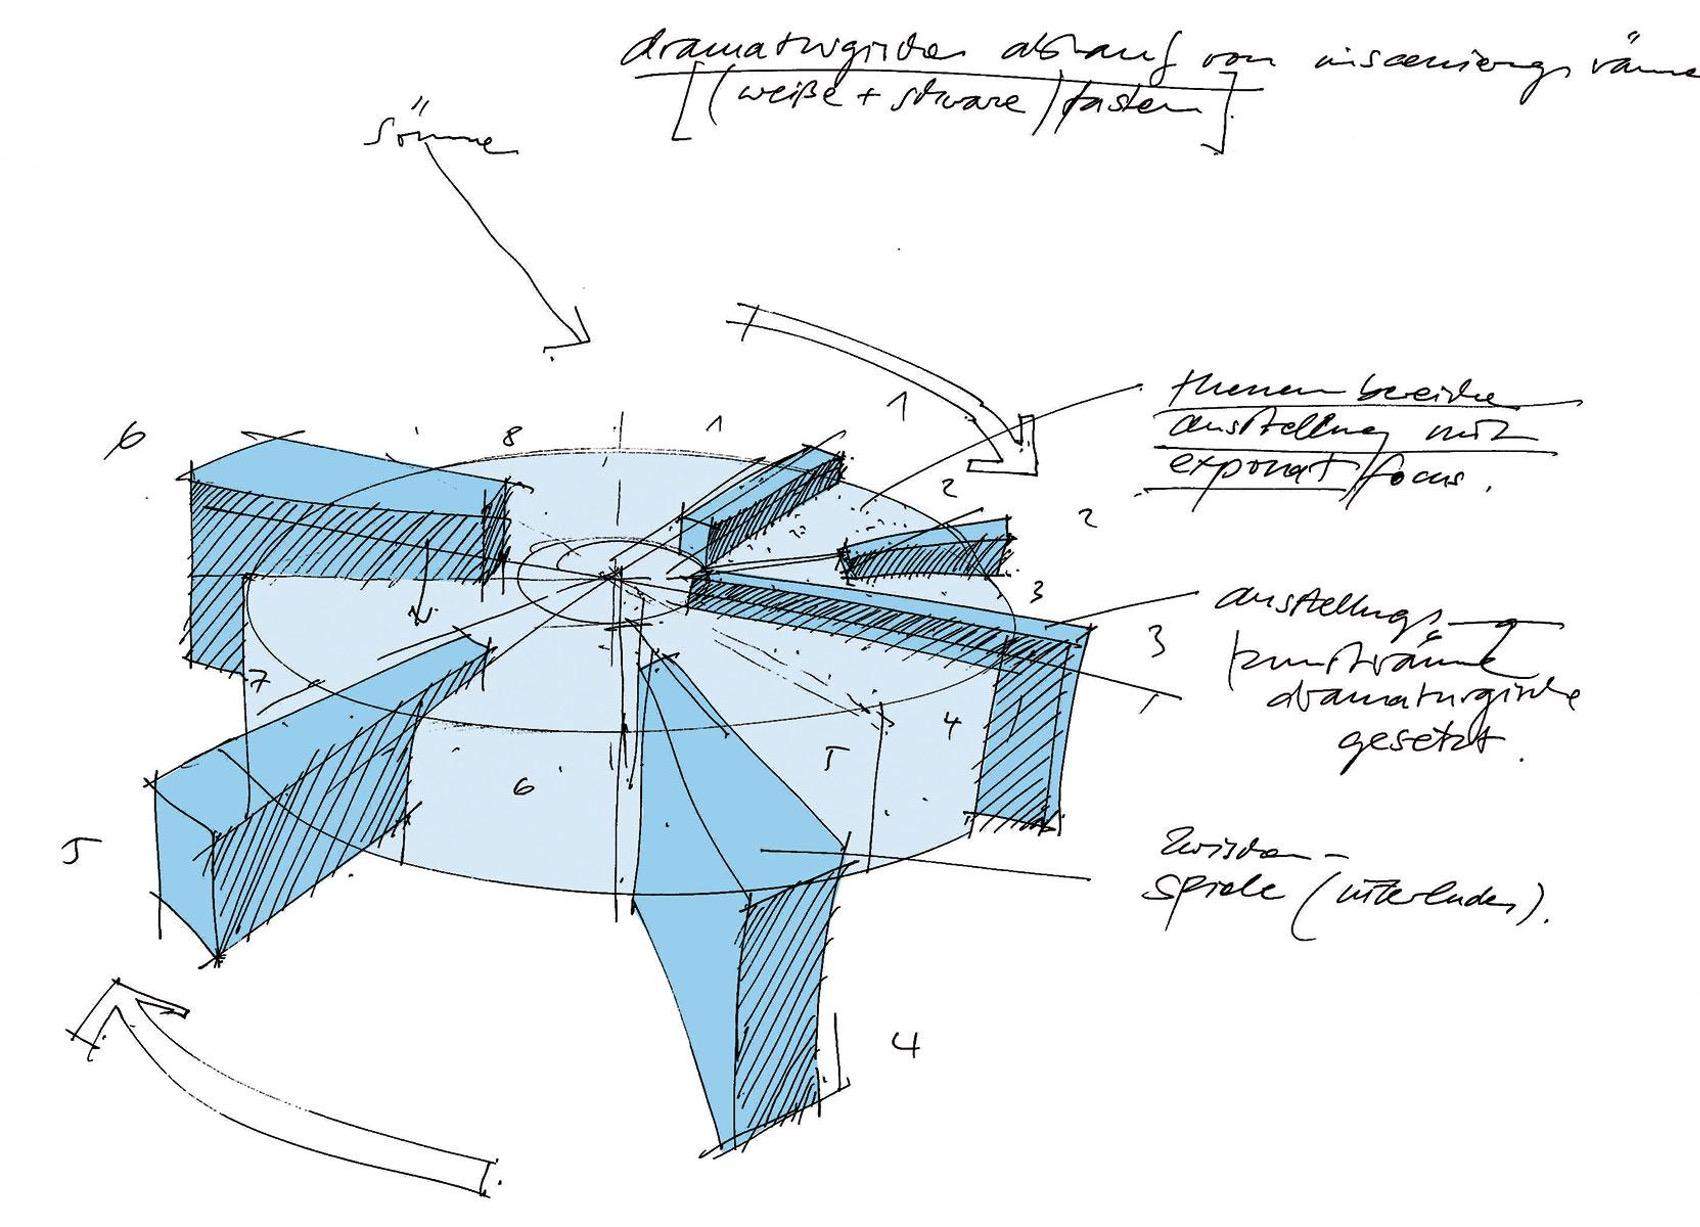 dramaturgischer ablauf von inscenierungsräume
[(weiße + schwarze) kasten]
6
8
1
1
2
2
themenbereiche
ausstellung mit
exponat/focus.
3
3
ausstellungs-
kunsträume
dramaturgische
gesetzt.
7
4
5
6
5
zwischen-
spiele (interludes).
4